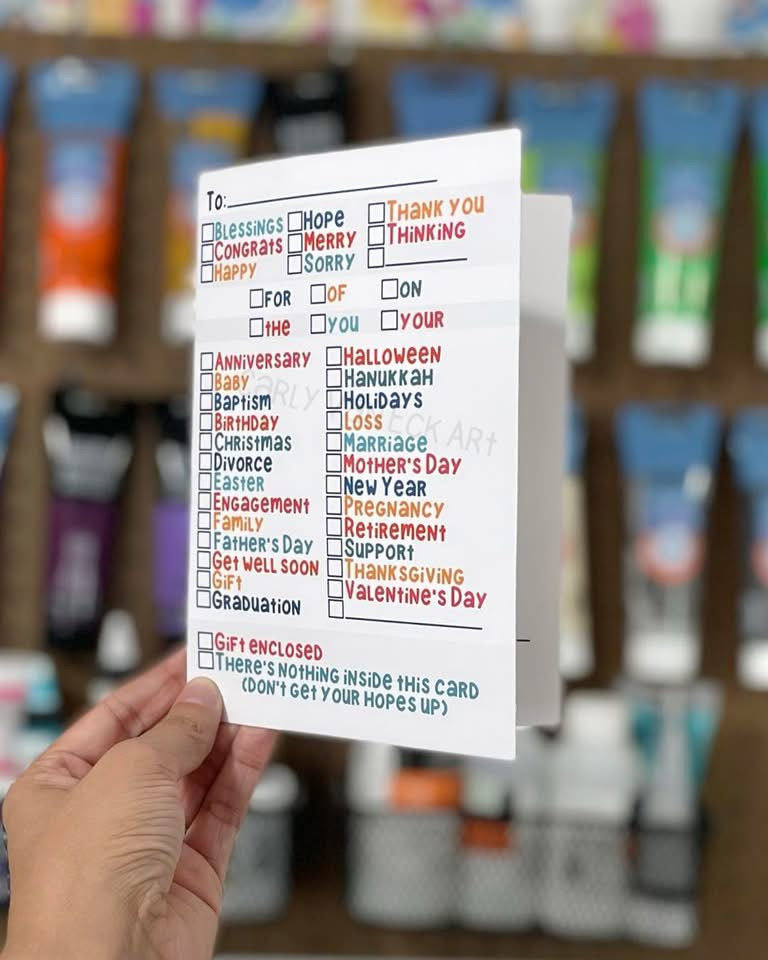 To:
Blessings Hope Thank you
Congrats Merry Thinking
Happy Sorry
For Of On
the you your
Anniversary Halloween
Baby Hanukkah
Baptism Holidays
Birthday Loss
Christmas Marriage
Divorce Mother's Day
Easter New Year
Engagement Pregnancy
Family Retirement
Father's Day Support
Get well soon Thanksgiving
Gift Valentine's Day
Graduation
Gift enclosed
There's nothing inside this card
(Don't get your hopes up)